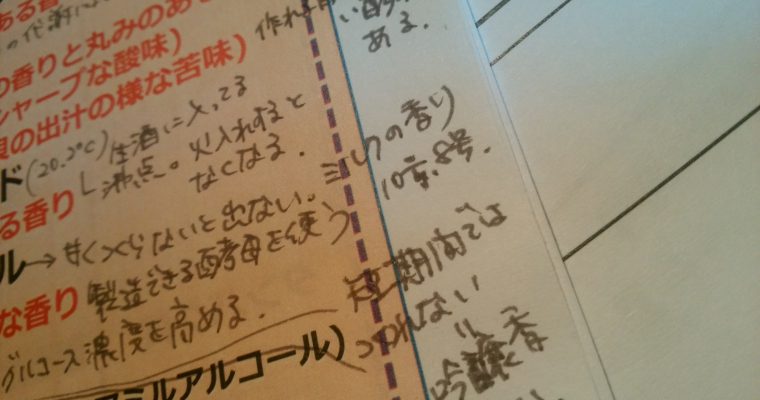 ある香
の代謝に
の香りと丸みのある
シャープな酸味)
の出汁の様な苦味)
ド(20.2℃) 生酒に入ってる
沸点。火入れすると
なくなる.
る香り
ル→甘くつくらないと出ない。
な香り 製造できる酵母を使う
グルコース濃度を高める.
アミルアルコール)
作れる
ある.
ミルクの香り
10号.8号.
短期間では
つくれない
吟醸香